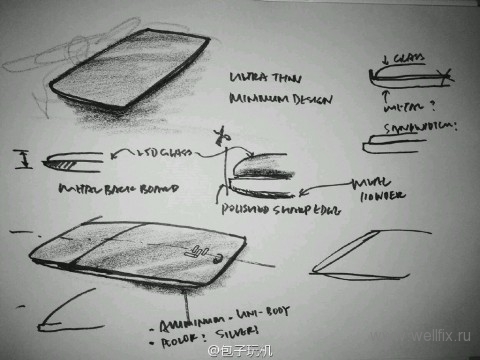 ULTRA THIN
MINIMUM DESIGN
GLASS
METAL?
SANDWICH?
LSD GLASS
METAL BACK BOARD
POLISHED SHARP EDGE
METAL
- ALUMINUM - UNI-BODY
- COLOR: SILVER!
@包子玩机
wellfix.ru